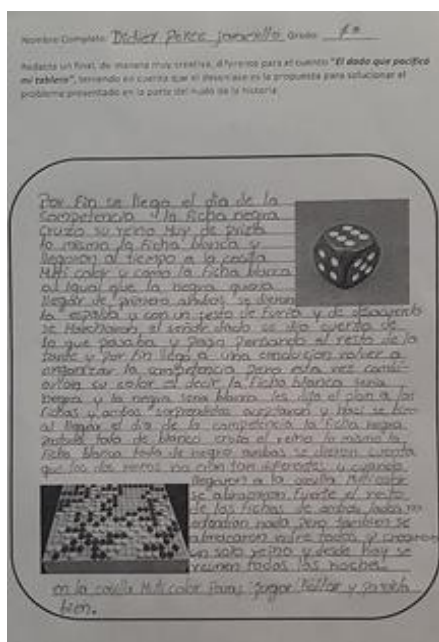 Nombre Completo: Didier Perez Jaramillo Grado:
Redacta un final, de manera muy creativa, diferente para el cuento "El dado que pacificó
mi tablero", teniendo en cuenta que el desenlace es la propuesta para solucionar el
problema presentado en la parte del nudo de la historia.
Por Fin se llego el dia de la
Competencia y la Ficha negra
Cruzo su reino Muy de prisa
lo mismo la Ficha blanca y
llegaron al tiempo a la casilla
Multi color y como la Ficha blanca
al igual que la negra queria
llegar de primero ambas se dieron
la espalda y con un gesto de Furia y de desacuerdo
se Marcharon el señor dado se dio cuenta de
lo que pasaba y paso pensando el resto de la
tarde y Por Fin llego a una conclusion volver a
organizar la competencia pero esta vez
su color es decir la Ficha blanca seria
negra y la negra seria blanca les dijo el plan a las
Fichas y ambas sorprendidas aceptaron y
al llegar el dia de la competencia la Ficha negra
toda de blanco cruza el reino lo mismo la
Ficha blanca toda de negro ambas se dieron cuenta
que los dos reinos no eran tan diferentes y cuando
llegaron a la casilla Multicolor
se abrazaron Fuerte el resto
de las Fichas de ambos lados no
entendian nada pero tambien se
abrazaron entre todos y crearon
un solo reino y desde hoy se
reunen todas las noches
en la casilla Multicolor Para Jugar y pasarla
bien.